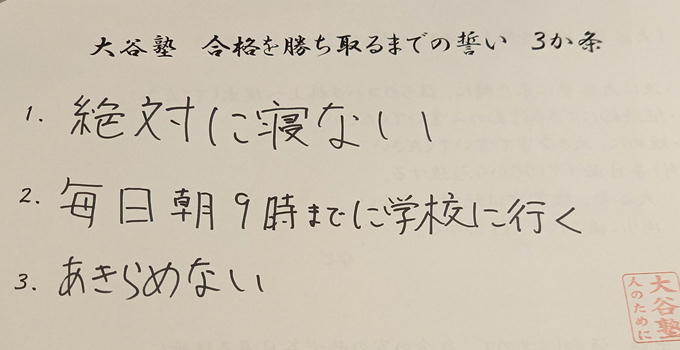 大谷塾 合格を勝ち取るまでの誓い 3か条
1. 絶対に寝ない
2. 毎日朝9時までに学校に行く
3. あきらめない
大谷塾
人のために